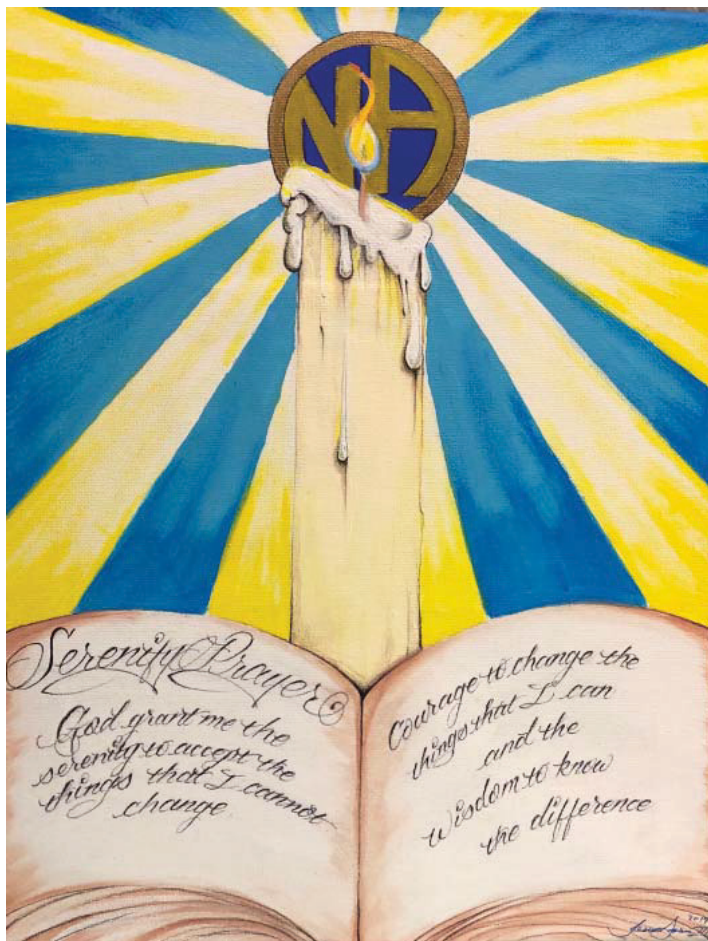 NA
Serenity Prayer
God grant me the
serenity to accept the
things that I cannot
change
Courage to change the
things that I can
and the
wisdom to know
the difference
2019